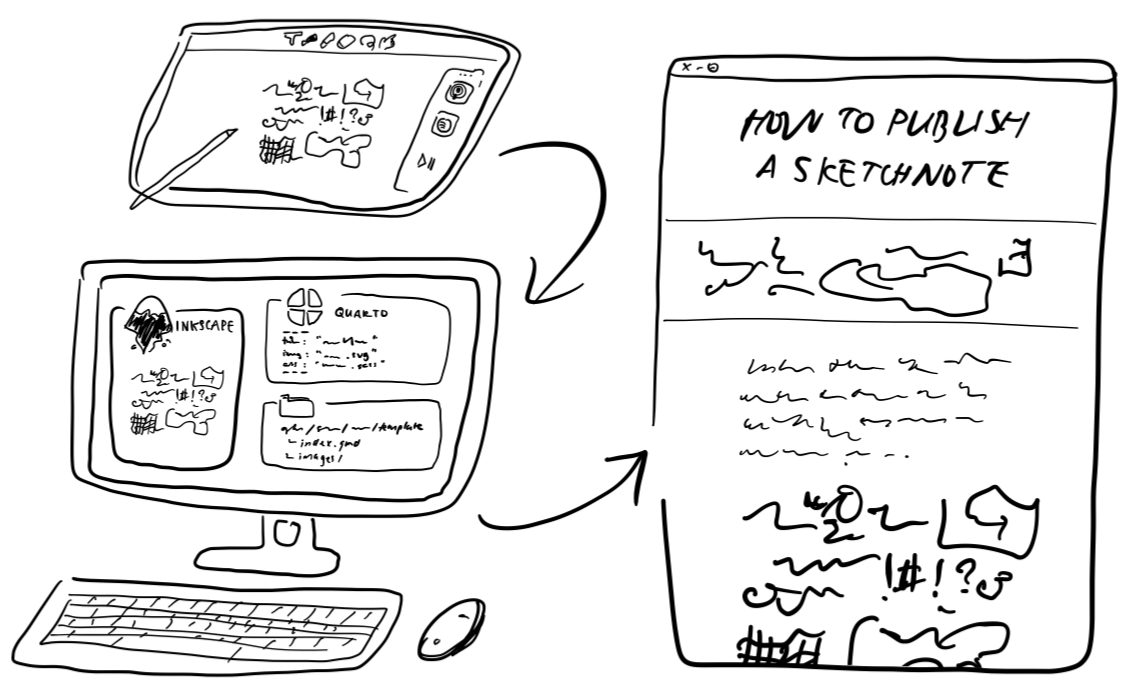 !#!?
INKSCAPE
QUARTO
img: " .svg"
" .scss"
!#!?
/template
index.qmd
images/
x - o
HOW TO PUBLISH
A SKETCHNOTE
!#!?